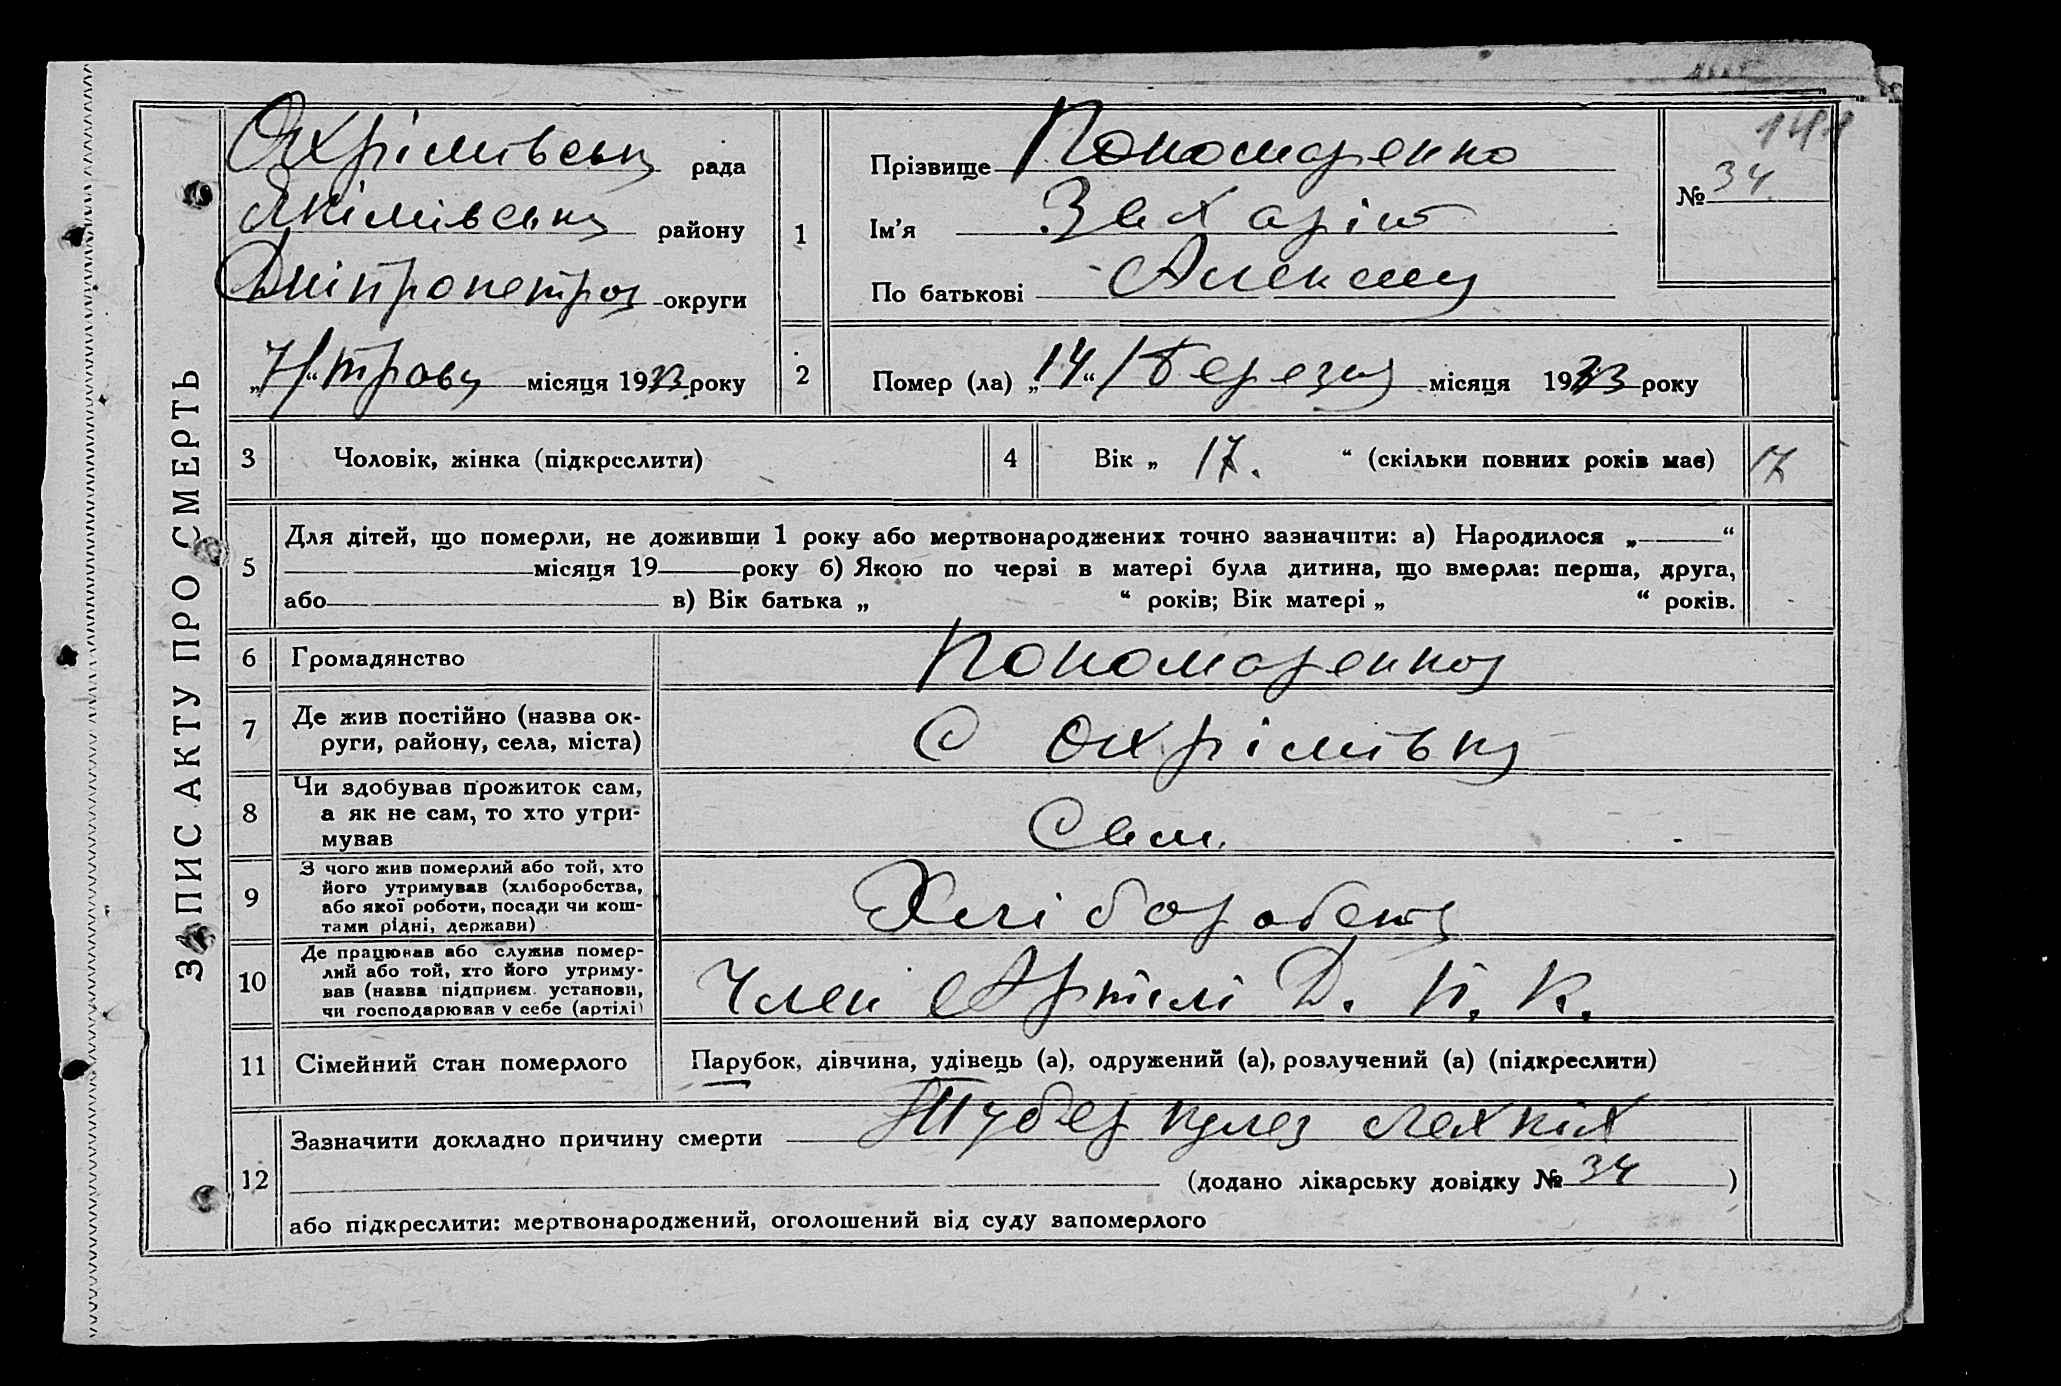 ЗАПИС АКТУ ПРО СМЕРТЬ
141
Охрімивськ рада
Якімівськ району
Дніпропетров округи
1
Прізвище Пономаренко
Ім’я Захарій
По батькові Алексеев
№ 34
„7“ траву місяця 1933 року
2
Помер (ла) „14“ березня місяця 1933 року
3 Чоловік, жінка (підкреслити)
4 Вік „ 17. “ (скільки повних років має) 17
5
Для дітей, що померли, не доживши 1 року або мертвонароджених точно зазначити: а) Народилося „ “
місяця 19 року б) Якою по черзі в матері була дитина, що вмерла: перша, друга,
або в) Вік батька „ “ років; Вік матері „ “ років.
6 Громадянство Пономаренко
7 Де жив постійно (назва ок-
руги, району, села, міста) с Охрімивку
8 Чи здобував прожиток сам,
а як не сам, то хто утри-
мував Сам.
9 З чого жив померлий або той, хто
його утримував (хліборобства,
або якої роботи, посади чи кош-
тами рідні, держави) Хліборобств
10 Де працював або служив помер-
лий або той, хто його утриму-
вав (назва підприєм. установи,
чи господарював у себе (артілі) Член Артілі Д. Н. К.
11 Сімейний стан померлого Парубок, дівчина, удівець (а), одружений (а), розлучений (а) (підкреслити)
12
Зазначити докладно причину смерти Туберкулез лехкіх
(додано лікарську довідку № 34 )
або підкреслити: мертвонароджений, оголошений від суду запомерлого